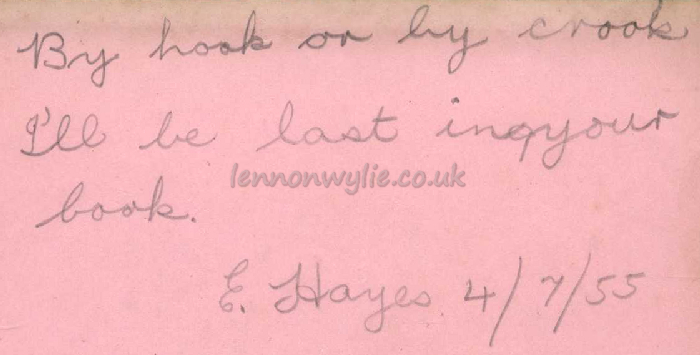 By hook or by crook
I'll be last inqyour
lennonwylie.co.uk
book.
E. Hayes 4/7/55